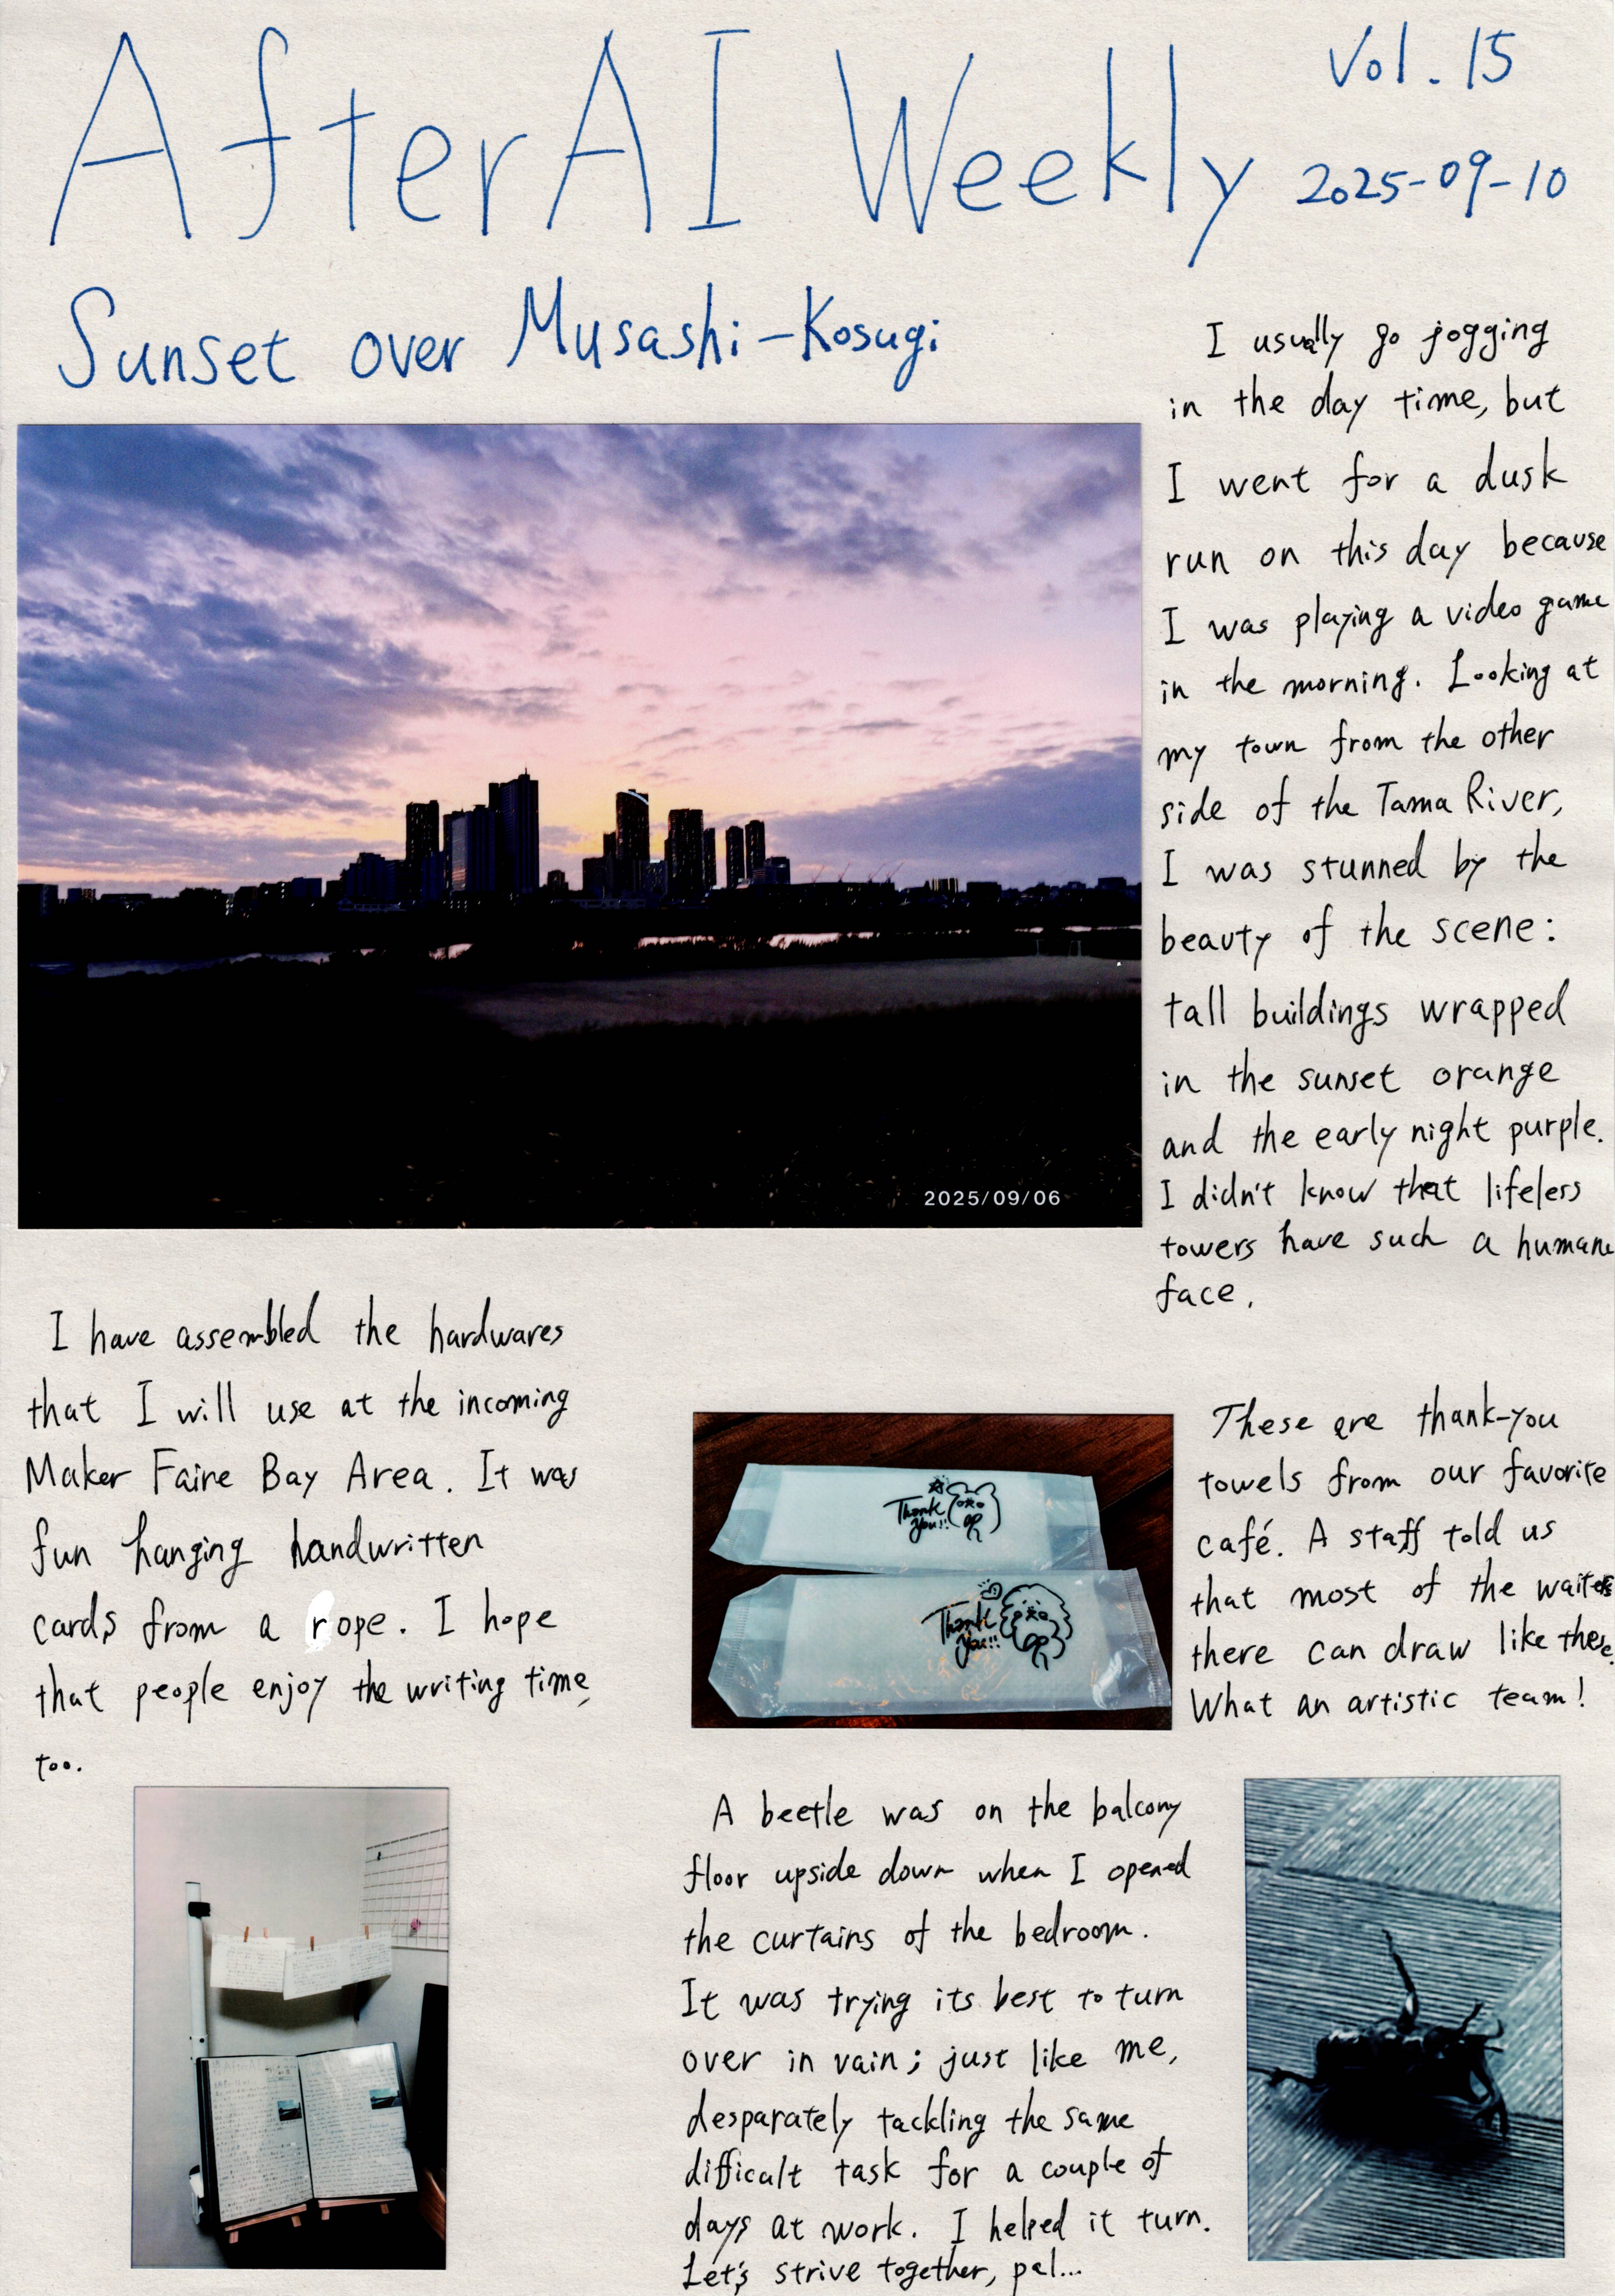 AfterAI Weekly
Vol. 15
2025-09-10
Sunset over Musashi-Kosugi
I usually go jogging
in the day time, but
I went for a dusk
run on this day because
I was playing a video game
in the morning. Looking at
my town from the other
side of the Tama River,
I was stunned by the
beauty of the scene:
tall buildings wrapped
in the sunset orange
and the early night purple.
I didn't know that lifeless
towers have such a humane
face.
2025/09/06
I have assembled the hardwares
that I will use at the incoming
Maker Faire Bay Area. It was
fun hanging handwritten
cards from a rope. I hope
that people enjoy the writing time,
too.
Thank
You!!
Thank
You!!
These are thank-you
towels from our favorite
café. A staff told us
that most of the waiters
there can draw like these.
What an artistic team!
A beetle was on the balcony
floor upside down when I opened
the curtains of the bedroom.
It was trying its best to turn
over in vain; just like me,
desparately tackling the same
difficult task for a couple of
days at work. I helped it turn.
Let's strive together, pal...